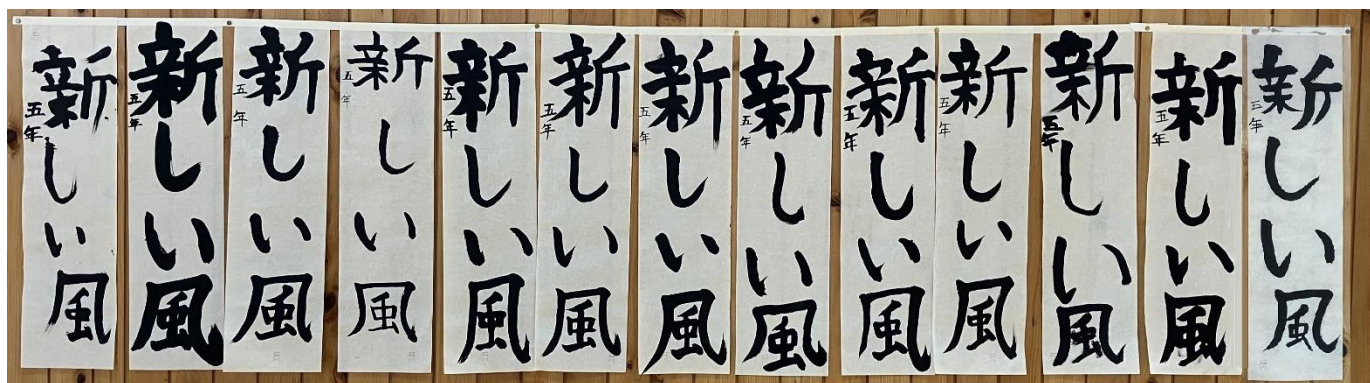 新しい風
五年
新しい風
五年
新しい風
五年
新しい風
五年
新しい風
五年
新しい風
五年
新しい風
五年
新しい風
五年
新しい風
五年
新しい風
五年
新しい風
五年
新しい風
五年
新しい風
五年